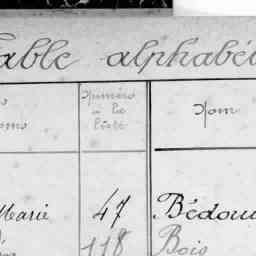 able alphabé
Numéro
à la
liste
Nom
oms
Marie 47 Bédou
118 Bois